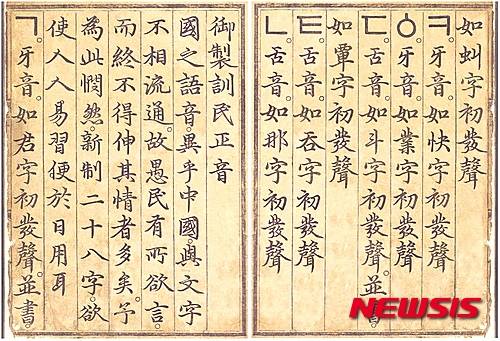 御製訓民正音
國之語音。異乎中國。與文字
不相流通。故愚民有所欲言。
而終不得伸其情者多矣。予
為此憫然。新制二十八字。欲
使人人易習便於日用耳
ㄱ牙音。如君字初發聲。並書。
如虯字初發聲
ㅋ牙音。如快字初發聲
ㆁ牙音。如業字初發聲
ㄷ舌音。如斗字初發聲。並書。
如覃字初發聲
ㅌ舌音。如呑字初發聲
ㄴ舌音。如那字初發聲
NEWSIS